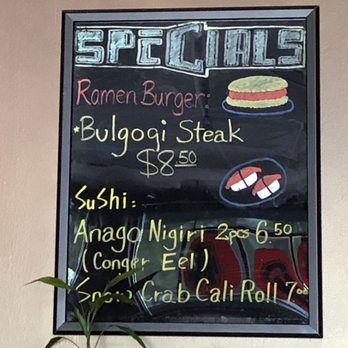 SPECIALS
Ramen Burger:
*Bulgogi Steak
$8.50
Sushi:
Anago Nigiri 2pcs 6.50
(Conger Eel)
Snow Crab Cali Roll 7.00